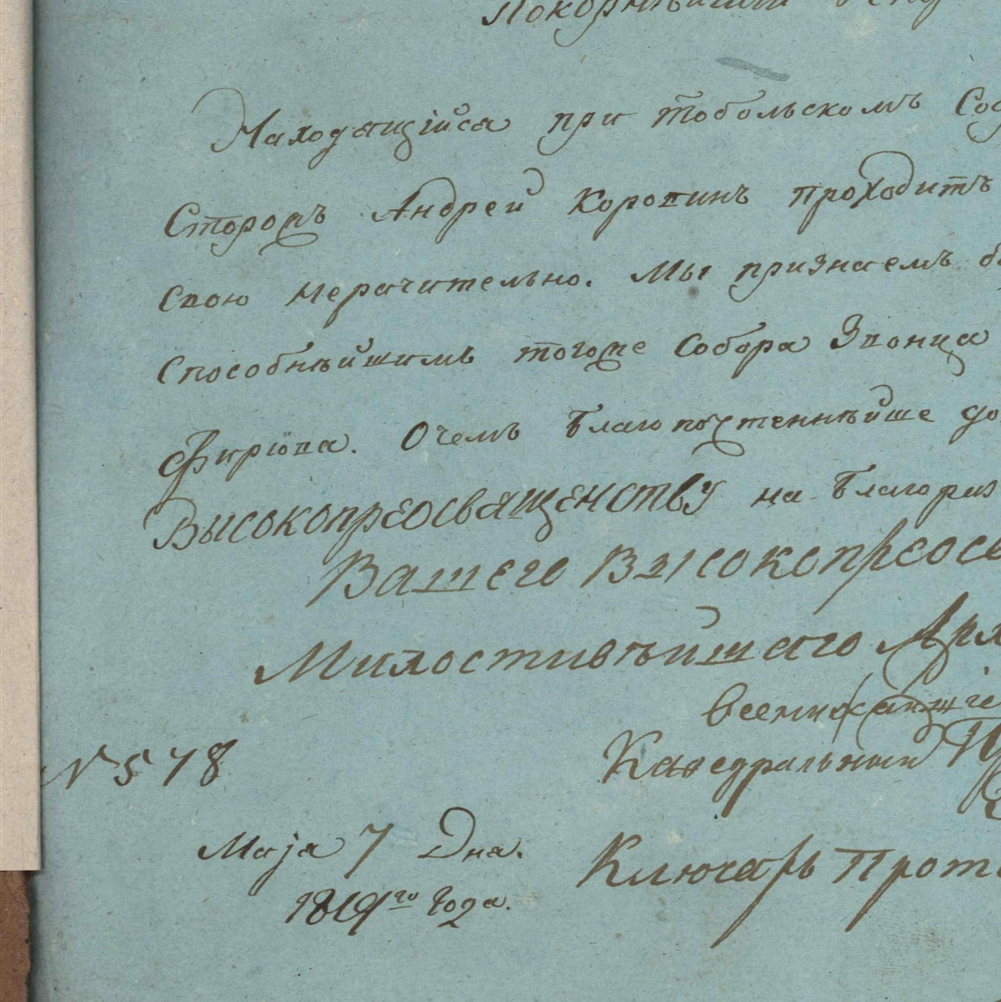 Покорнѣйший Реп
Находящійся при тобольскомъ Со
Сторожъ Андрей Коропинъ проходитъ
свою нерачительно. Мы признаемъ
способнѣйшимъ тогоже Собора Звонца
Фирюва. Очемъ благопочтеннѣйше до
Высокопреосвященству на благораз
Вашего Высокопреосв
Милостивѣйшаго Архи
Кафедральный
N 578
Маја 7 Дня.
1819го года.
Ключарь Прот